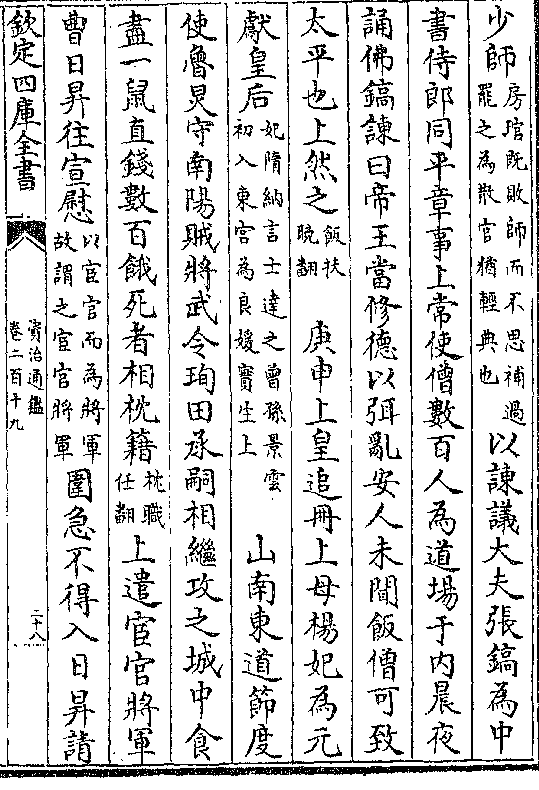 少師房琯既敗師而不思補過罷之為散官猶輕典也以諫議大夫張鎬為中
書侍郎同平章事上常使僧數百人為道場于内晨夜
誦佛鎬諫曰帝王當修德以弭亂安人未聞飯僧可致
太平也上然之飯扶晚翻 庚申上皇追冊上母楊妃為元
獻皇后妃隋納言士達之曾孫景雲初入東宫為良媛實生上 山南東道節度
使魯炅守南陽賊將武令珣田承嗣相繼攻之城中食
盡一鼠直錢數百餓死者相枕籍枕職任翻上遣宦官將軍
曹日昇往宣慰以宦官而為將軍故謂之宦官將軍圍急不得入日昇請
欽定四庫全書 資治通鑑卷二百十九 二十八